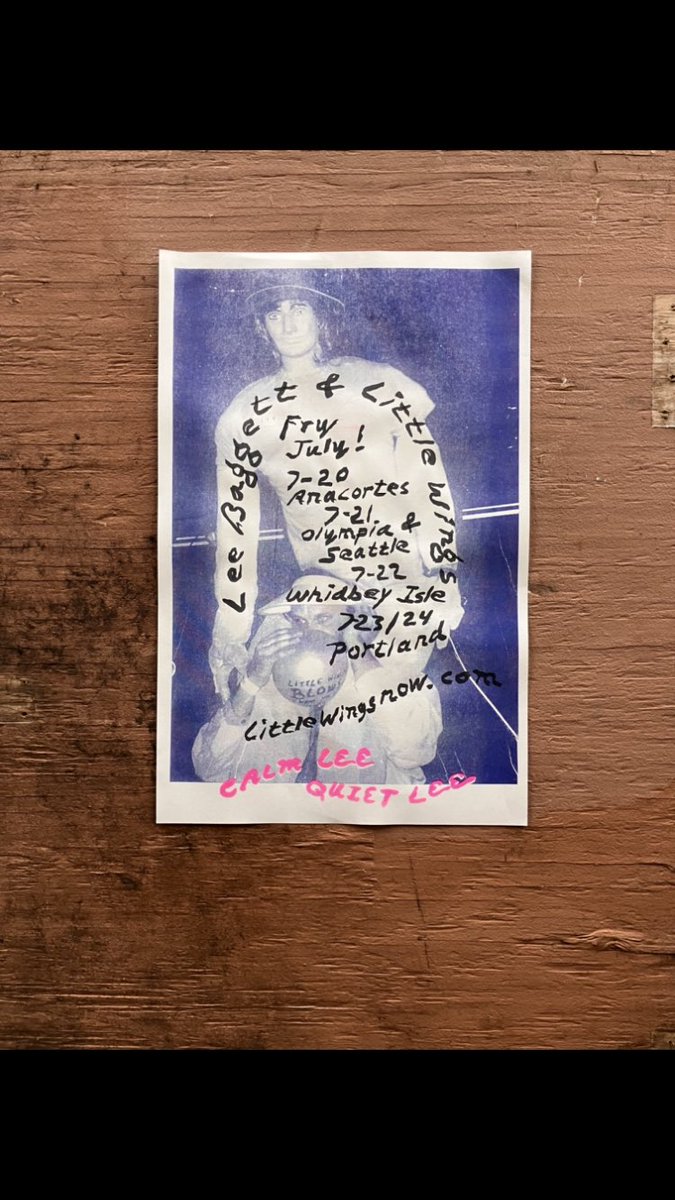 Lee Baggett & Little Wings
Fry
July!
7-20
Anacortes
7-21
Olympia &
Seattle
7-22
Whidbey Isle
723/24
Portland
LITTLE WINGS
BLOWS
LittleWingsnow.com
CALM LEE
QUIET LEE